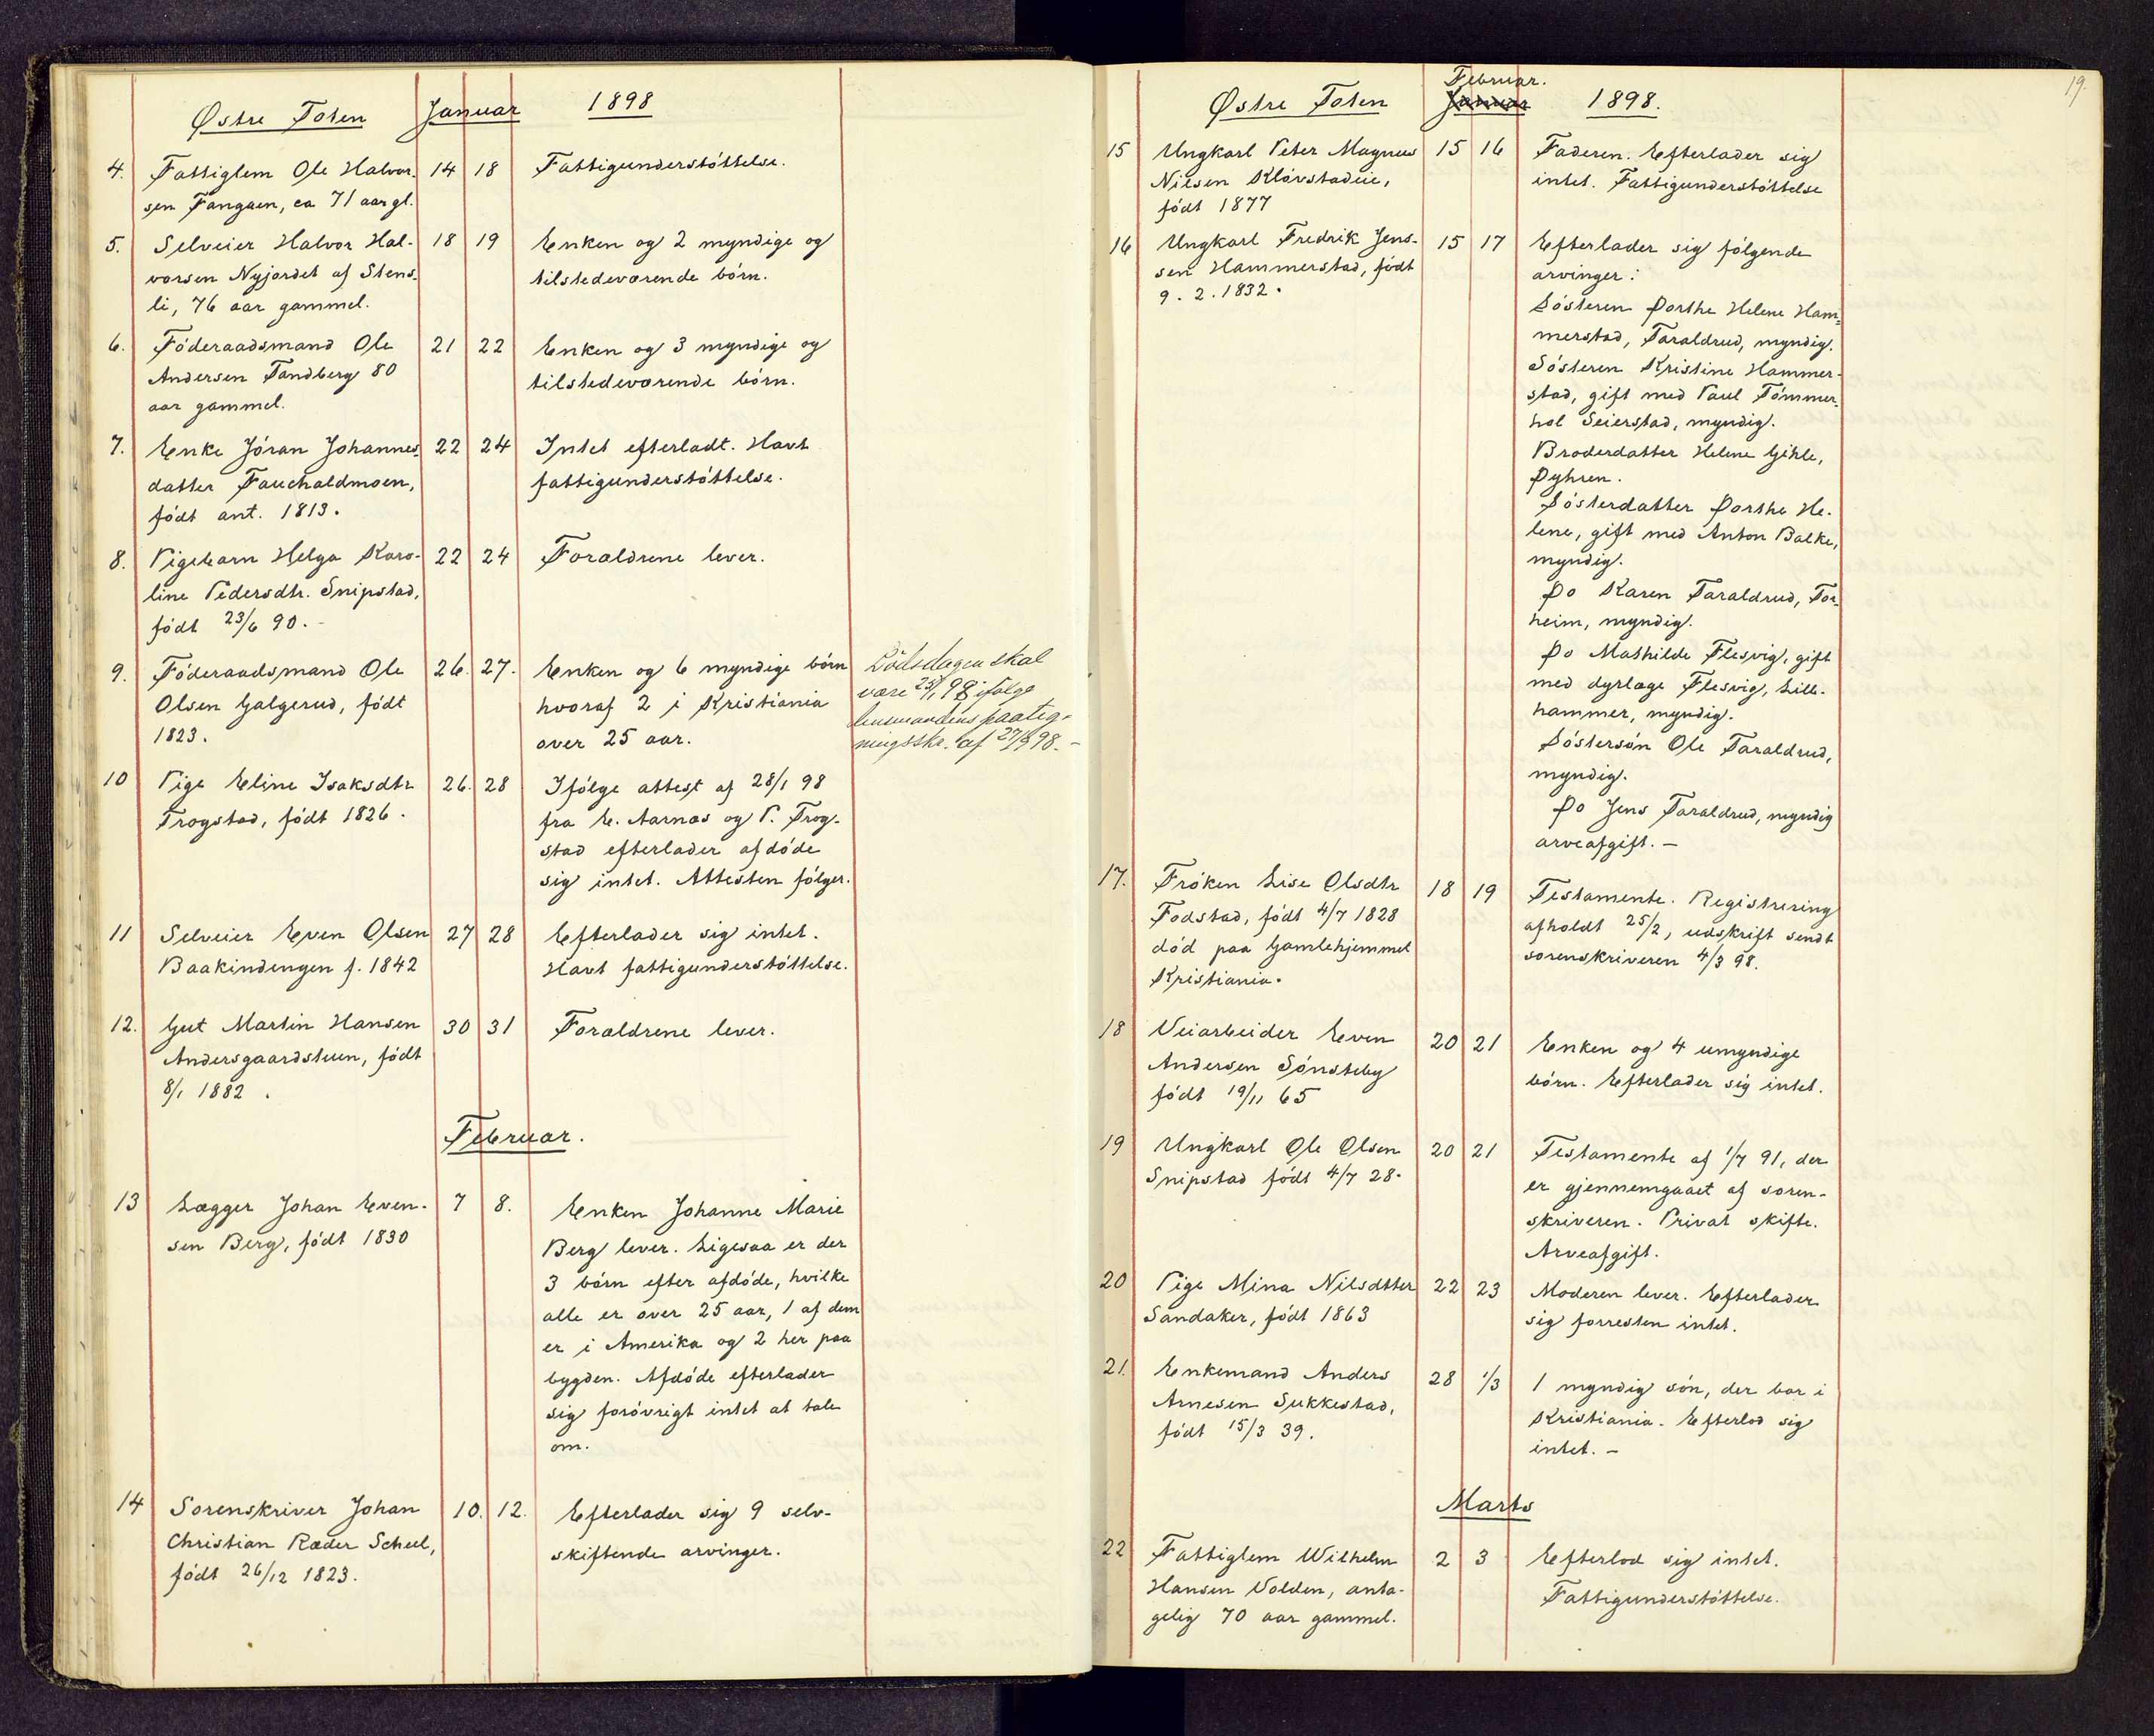 Østre Toten Januar 1898
4. Fattiglem Ole Halvor- 14 18 Fattigunderstóttelse.
sen Fangaen, ca 71 aar gl.
5. Selveier Halvor Hal- 18 19 Enken og 2 myndige og
vorsen Nyjordet af Stens- tilstedeværende börn.
li, 76 aar gammel.
6. Föderaadsmand Ole 21 22 Enken og 3 myndige og
Andersen Tandberg 80 tilstedeværende börn.
aar gammel.
7. Enke Jöran Johannes- 22 24 Intet efterladt. Havt
datter Fauchaldmoen, fattigunderstöttelse.
födt ant. 1813.
8. Pigebarn Helga Karo- 22 24 Forældrene lever.
line Pedersdtr. Snipstad,
födt 23/6 90.
9. Föderaadsmand Ole 26. 27. Enken og 6 myndige börn Dödsdagen skal
Olsen Galgerud, födt hvoraf 2 i Kristiania være 25/1 98 ifölge
1823. over 25 aar. lensmandens paateg-
ningsskr. af 27/9 98.-
10 Pige Eline Isaksdtr 26. 28 Ifölge attest af 28/1 98
Trogstad, födt 1826. fra E. Aarnæs og P. Trog-
stad efterlader afdöde
sig intet. Attesten fölger.
11 Selveier Even Olsen 27 28 Efterlader sig intet.
Baakindengen f. 1842 Havt fattigunderstöttelse.
12. Gut Martin Hansen 30 31 Forældrene lever.
Andersgaardstuen, födt
8/1 1882.
Februar.
13 Lægger Johan Even- 7 8. Enken Johanne Marie
sen Berg, födt 1830 Berg lever. Ligesaa er der
3 börn efter afdöde, hvilke
alle er over 25 aar, 1 af dem
er i Amerika og 2 her paa
bygden. Afdöde efterlader
sig forövrigt intet at tale
om.
14 Sorenskriver Johan 10. 12. Efterlader sig 9 selv-
Christian Ræder Scheel, skiftende arvinger.
födt 26/12 1823.
19.
Februar.
Østre Toten Januar 1898.
15 Ungkarl Peter Magnus 15 16 Faderen. Efterlader sig
Nilsen Klövstadeie, intet. Fattigunderstöttelse
födt 1877
16 Ungkarl Fredrik Jens- 15 17 Efterlader sig fölgende
sen Hammerstad, födt arvinger:
9. 2. 1832. Sösteren Dorthe Helene Ham-
merstad, Taraldrud, myndig.
Sösteren Kristine Hammer-
stad, gift med Paul Tömmer-
hol Seierstad, myndig.
Broderdatter Helene Gihle,
Dyhren.
Sösterdatter Dorthe He-
lene, gift med Anton Balke,
myndig.
Do Karen Taraldrud, Tor-
heim, myndig.
Do Mathilde Flesvig, gift
med dyrlæge Flesvig, Lille-
hammer, myndig.
Söstersön Ole Taraldrud,
myndig.
Do Jens Taraldrud, myndig
arveafgift. -
17. Fröken Lise Olsdtr 18 19 Testamente. Registrering
Fodstad, födt 4/7 1828 afholdt 25/2, udskrift sendt
död paa Gamlehjemmet sorenskriveren 4/3 98.
Kristiania.
18 Veiarbeider Even 20 21 Enken og 4 umyndige
Andersen Sönsteby börn. Efterlader sig intet.
födt 19/11 65
19 Ungkarl Ole Olsen 20 21 Testamente af 1/7 91, der
Snipstad födt 4/7 28. er gjennemgaaet af soren-
skriveren. Privat skifte.
Arveafgift.
20 Pige Mina Nilsdtter 22 23 Moderen lever. Efterlader
Sandaker, födt 1863 sig forresten intet.
21. Enkemand Anders 28 1/3 1 myndig sön, der bor i
Arnesen Sukkestad, Kristiania. Efterlod sig
födt 15/3 39. intet. -
Marts
22 Fattiglem Wilhelm 2 3 Efterlod sig intet.
Hansen Volden, anta- Fattigunderstöttelse.
gelig 70 aar gammel.